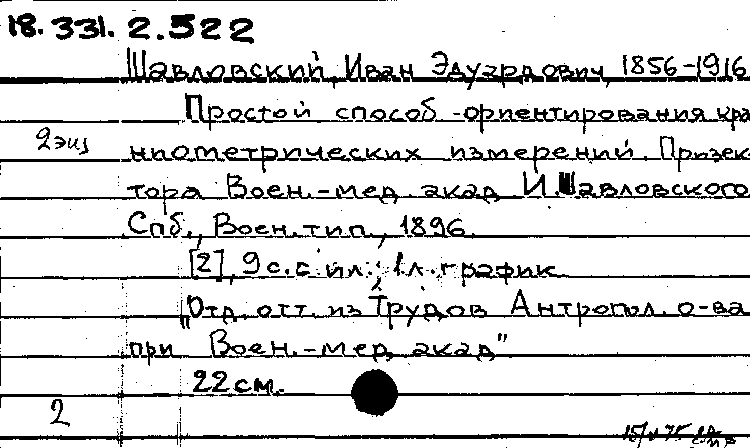 18.331.2.522
Шавловский, Иван Эдуардович, 1856-1916
Простой способ ориентирования кра
2 экз
ниометрических измерений. Призек
тора Воен.-мед. акад. И. Шавловского
Спб., Воен. тип., 1896.
[2], 9 с. с ил.; 1 л. график.
"Отд. отт. из Трудов Антропол. о-ва
при Воен.-мед. акад."
22 см.
2